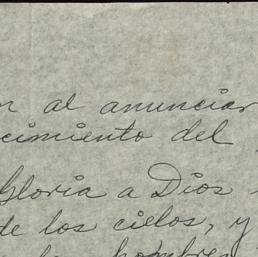 n al anunciar
cimiento del
Gloria a Dios
de los cielos, y
hombres